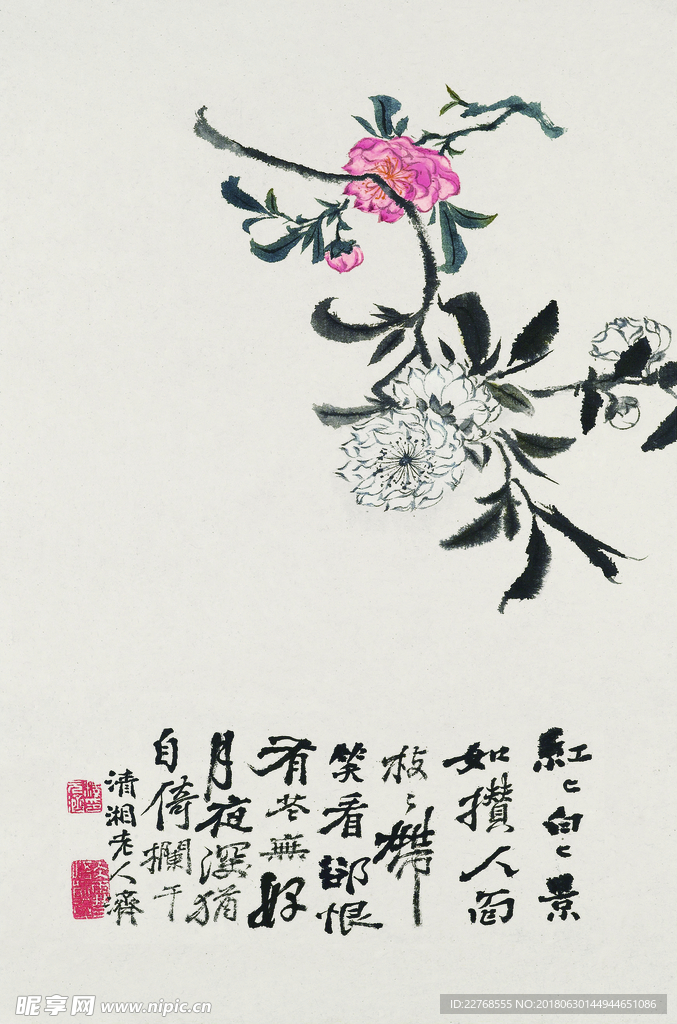 紅〻白〻景
如攢人面
枝〻帶
笑看卻恨
有花無好
月夜深猶
自倚欄干
清湘老人濟
昵享网 www.nipic.cn
ID:22768555 NO:20180630144944651086